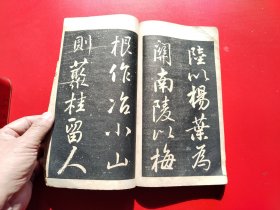 陸以楊葉為
關南陵以梅
根作冶小山
則藂桂留人